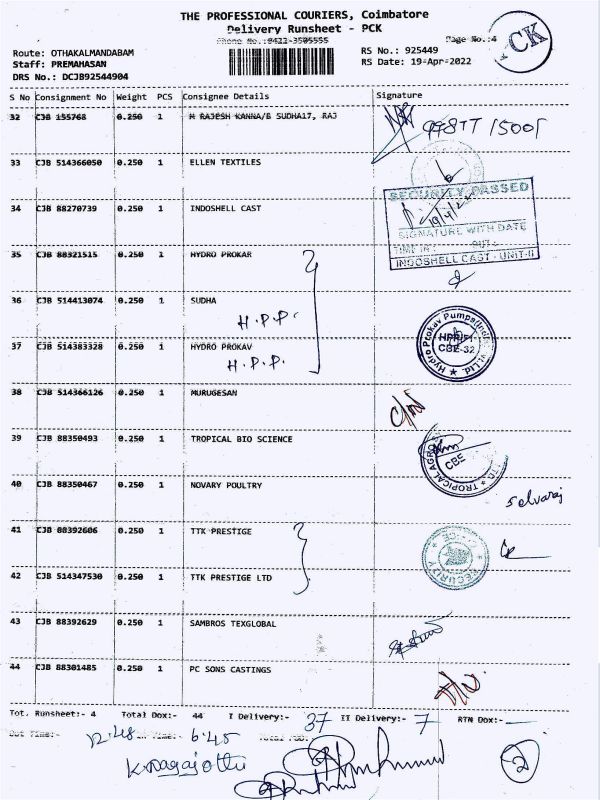 THE PROFESSIONAL COURIERS, Coimbatore
Delivery Runsheet - PCK
Phone No.:0422-3505555
Page No.:4
CK
Route: OTHAKALMANDABAM
RS No.: 925449
Staff: PREMAHASAN
RS Date: 19-Apr-2022
DRS No.: DCJB92544904
S No Consignment No Weight PCS Consignee Details Signature
32 CJB 155768 0.250 1 H RAJESH KANNA/B SUDHA17, RAJ
33 CJB 514366050 0.250 1 ELLEN TEXTILES
SECURITY PASSED
19/4/22
34 CJB 88270739 0.250 1 INDOSHELL CAST
SIGNATURE WITH DATE
TIME IN: OUT:
35 CJB 88321515 0.250 1 HYDRO PROKAR
INDOSHELL CAST - UNIT-II
36 CJB 514413074 0.250 1 SUDHA
H.P.P.
Hydro Prokav Pumps
CBE-32
37 CJB 514383328 0.250 1 HYDRO PROKAV
H.P.P.
38 CJB 514366126 0.250 1 MURUGESAN
39 CJB 88350493 0.250 1 TROPICAL BIO SCIENCE
CBE
TROPICAL AGRO
40 CJB 88350467 0.250 1 NOVARY POULTRY
Selvaraj
41 CJB 88392606 0.250 1 TTK PRESTIGE
SECURITY
42 CJB 514347530 0.250 1 TTK PRESTIGE LTD
43 CJB 88392629 0.250 1 SAMBROS TEXGLOBAL
44 CJB 88301485 0.250 1 PC SONS CASTINGS
Tot. Runsheet:- 4 Total Dox:- 44 I Delivery:- 37 II Delivery:- 7 RTN Dox:-
Out Time:- 12.48 In Time:- 6.45
2